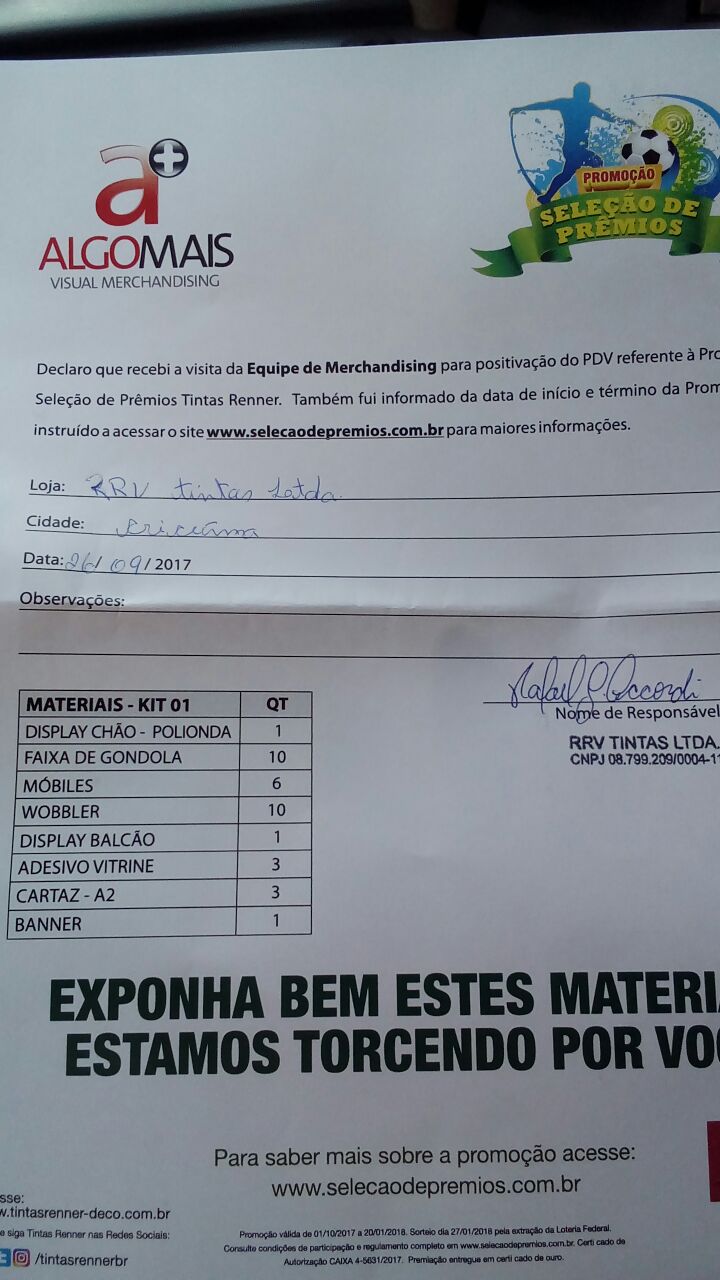 a+
ALGOMAIS
VISUAL MERCHANDISING
PROMOÇÃO
SELEÇÃO DE
PRÊMIOS
Declaro que recebi a visita da Equipe de Merchandising para positivação do PDV referente à Pro
Seleção de Prêmios Tintas Renner. Também fui informado da data de início e término da Prom
instruído a acessar o site www.selecaodepremios.com.br para maiores informações.
Loja: RRV tintas Letda
Cidade: criciúma
Data: 26/ 09/ 2017
Observações:
Rafael G. Accordi
Nome de Responsável
RRV TINTAS LTDA.
CNPJ 08.799.209/0004-11
MATERIAIS - KIT 01 QT
DISPLAY CHÃO - POLIONDA 1
FAIXA DE GONDOLA 10
MÓBILES 6
WOBBLER 10
DISPLAY BALCÃO 1
ADESIVO VITRINE 3
CARTAZ - A2 3
BANNER 1
EXPONHA BEM ESTES MATERI
ESTAMOS TORCENDO POR VO
Para saber mais sobre a promoção acesse:
www.selecaodepremios.com.br
sse:
w.tintasrenner-deco.com.br
e siga Tintas Renner nas Redes Sociais:
/tintasrennerbr
Promoção válida de 01/10/2017 a 20/01/2018. Sorteio dia 27/01/2018 pela extração da Loteria Federal.
Consulte condições de participação e regulamento completo em www.selecaodepremios.com.br. Certi cado de
Autorização CAIXA 4-5631/2017. Premiação entregue em certi cado de ouro.